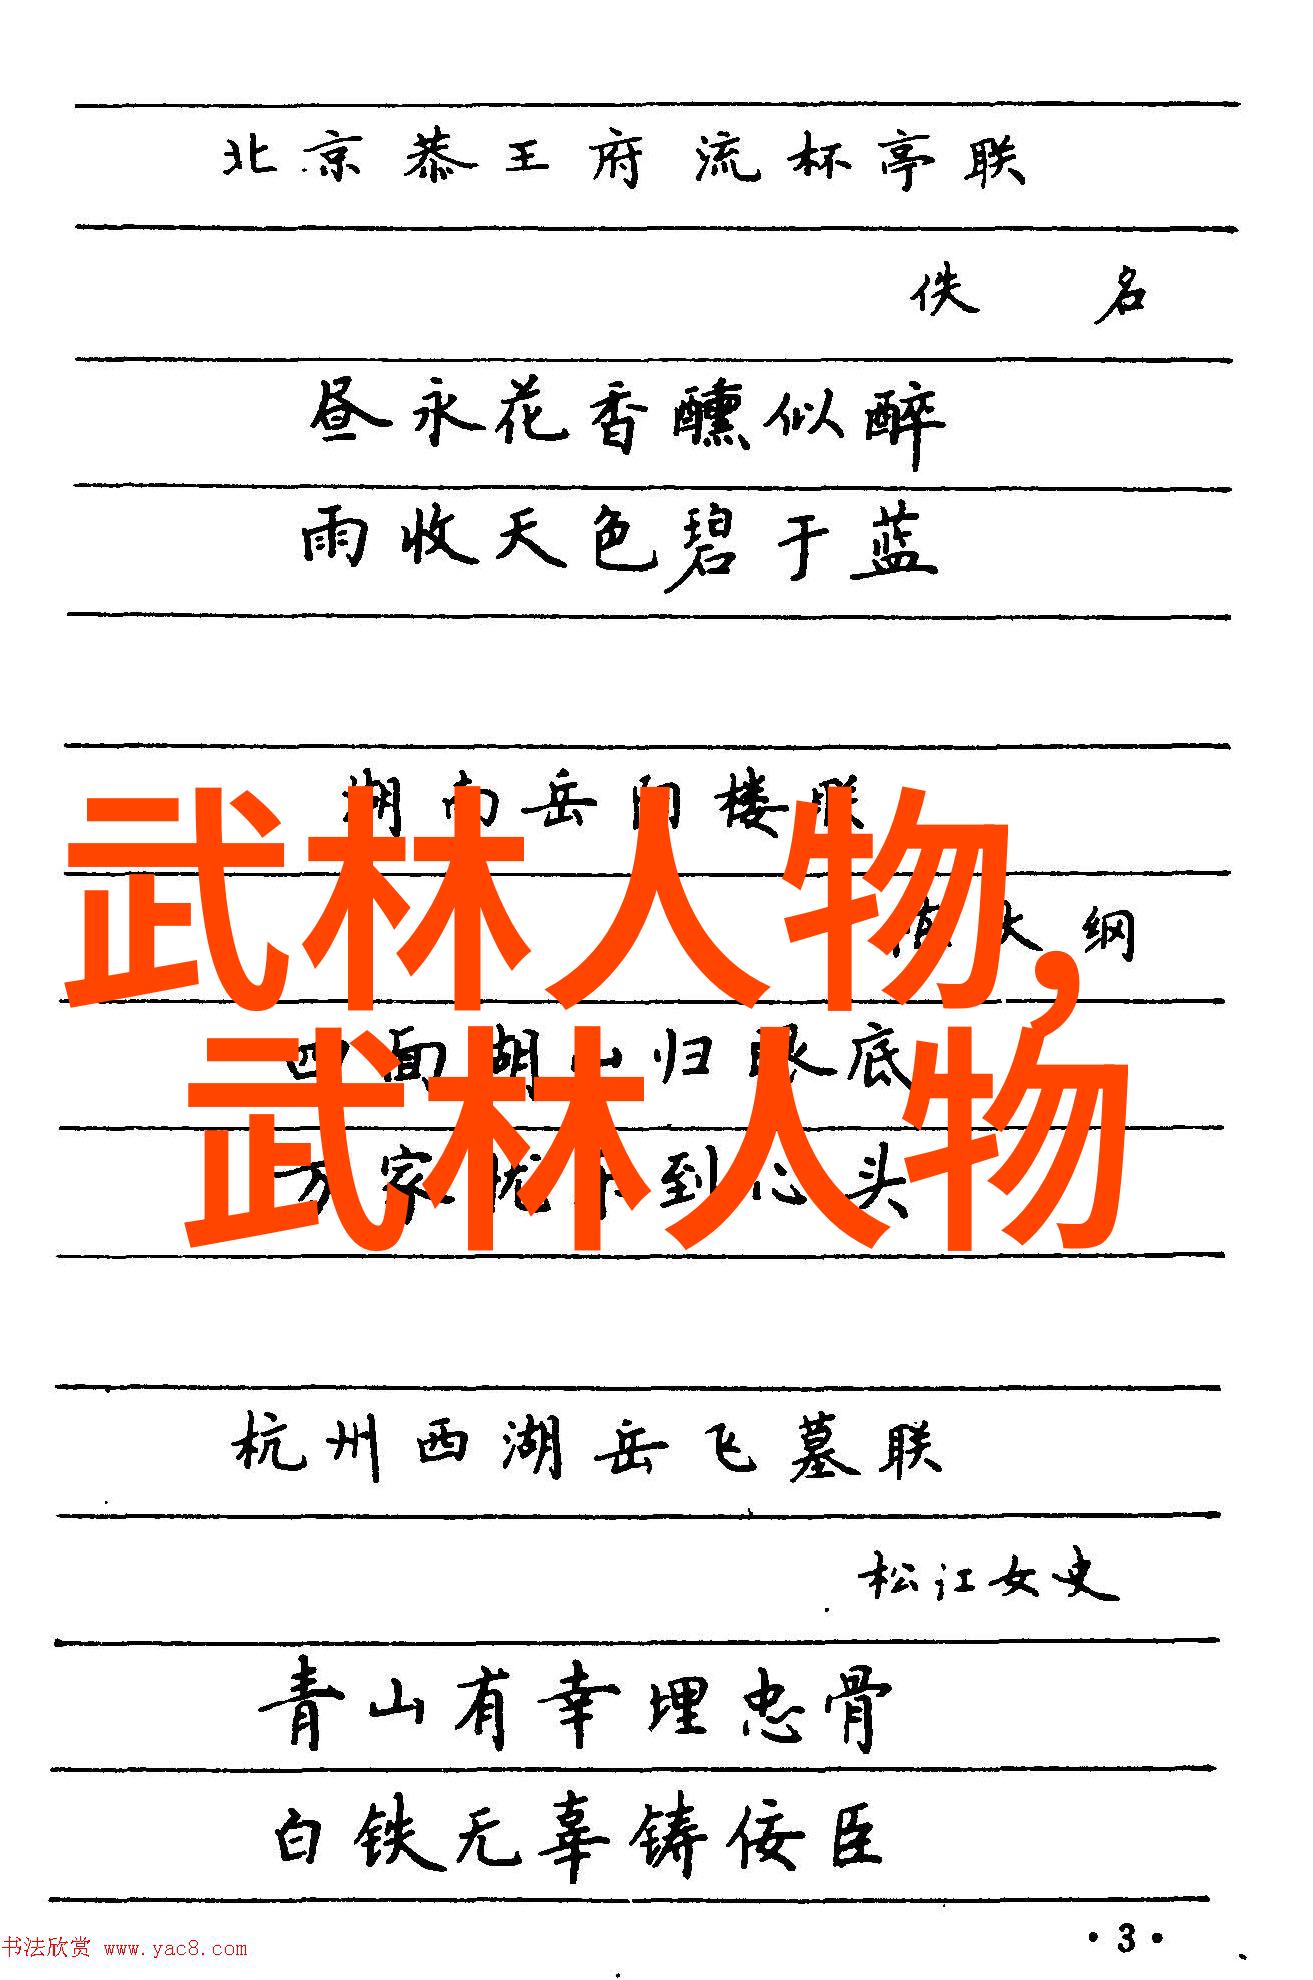 北京恭王府流杯亭联
佚名
昼永花香醺似醉
雨收天色碧于蓝
湖南岳阳楼联
大纲
武林人物,
四面湖山归眼底
武林人物
万家忧乐到心头
杭州西湖岳飞墓联
松江女史
青山有幸埋忠骨
白铁无辜铸佞臣
·3·
书法欣赏 www.yac8.com